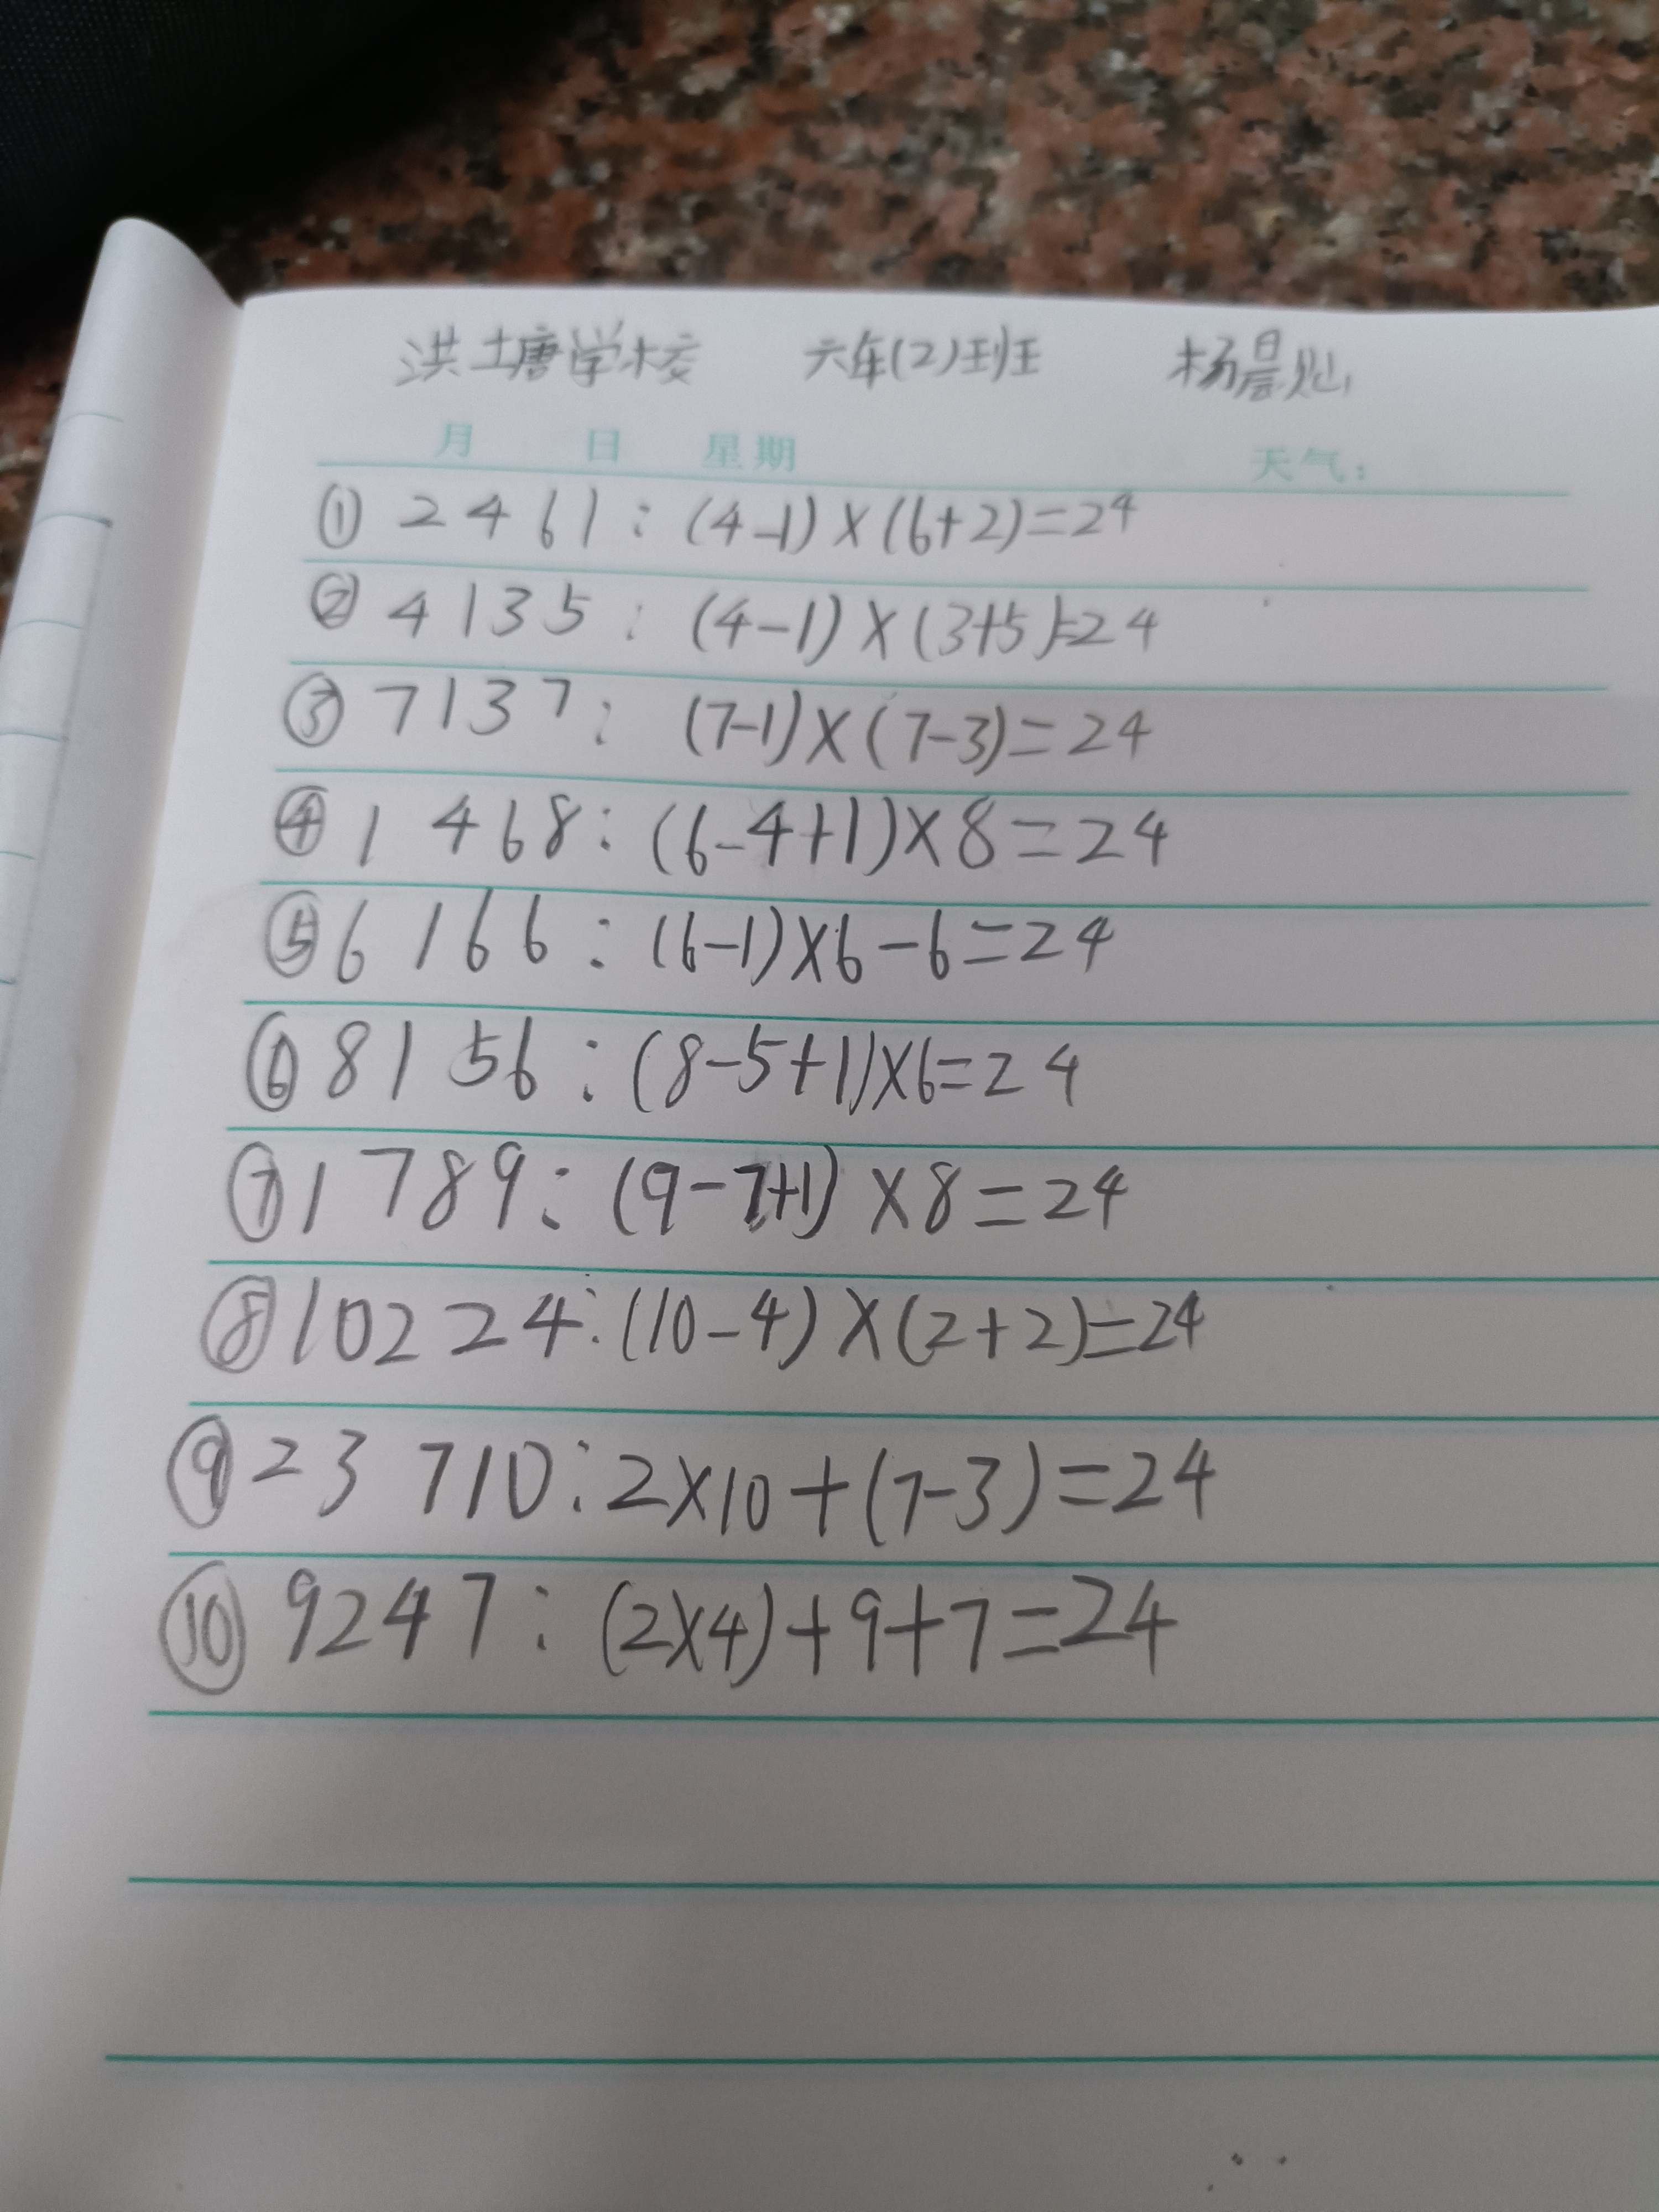 洪塘学校 六年(2)班 杨晨
月 日 星期 天气：
① 2 4 6 1 : (4-1)×(6+2)=24
② 4 1 3 5 : (4-1)×(3+5)=24
③ 7 1 3 7 : (7-1)×(7-3)=24
④ 1 4 6 8 : (6-4+1)×8=24
⑤ 6 1 6 6 : (6-1)×6-6=24
⑥ 8 1 5 6 : (8-5+1)×6=24
⑦ 1 7 8 9 : (9-7+1)×8=24
⑧ 10 2 2 4 : (10-4)×(2+2)=24
⑨ 2 3 7 10 : 2×10+(7-3)=24
⑩ 9 2 4 7 : (2×4)+9+7=24